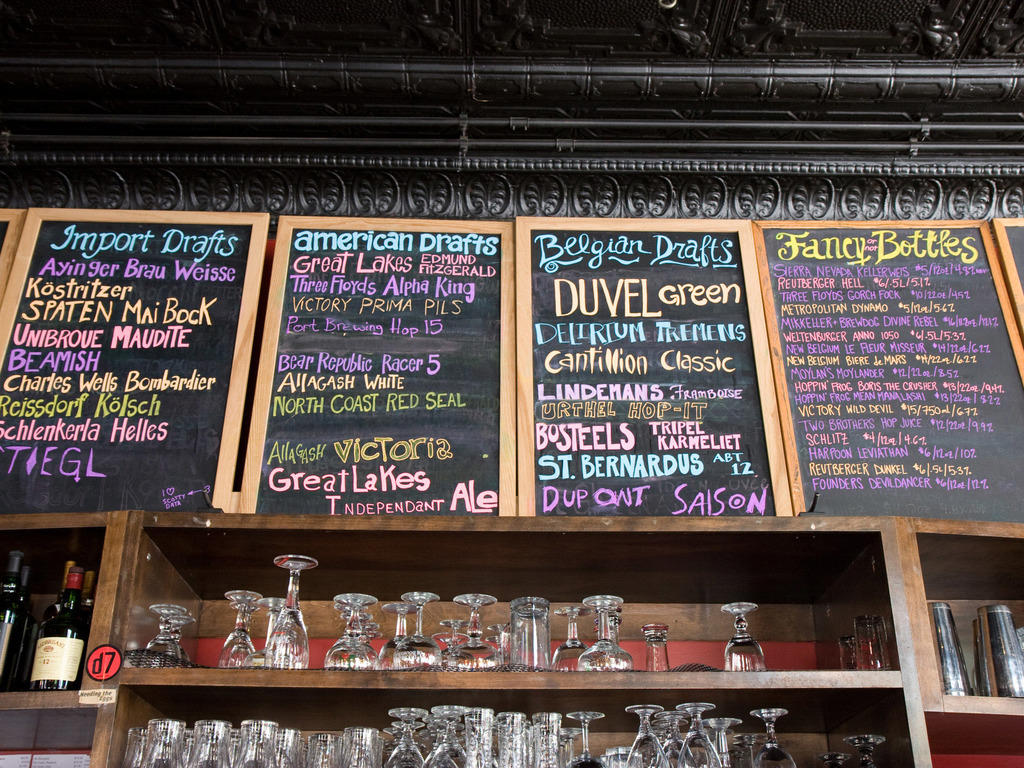 Import Drafts
Ayinger Brau Weisse
Köstritzer
SPATEN Mai Bock
UNIBROUE MAUDITE
BEAMISH
Charles Wells Bombardier
Reissdorf Kölsch
Schlenkerla Helles
STIEGL
I ♡
SCOTTY
DATA
american Drafts
Great Lakes EDMUND FITZGERALD
Three Floyds Alpha King
VICTORY PRIMA PILS
Port Brewing Hop 15
Bear Republic Racer 5
ALLAGASH WHITE
NORTH COAST RED SEAL
Allagash Victoria
Great Lakes
Independant Ale
Belgian Drafts
DUVEL Green
DELIRIUM TREMENS
Cantillion Classic
LINDEMANS Framboise
URTHEL HOP-IT
BOSTEELS TRIPEL KARMELIET
ST. BERNARDUS ABT 12
DUPONT SAISON
Fancy or not Bottles
SIERRA NEVADA KELLERWEIS $5/12oz/4.8%
REUTBERGER HELL $6/.5L/5.1%
THREE FLOYDS GORCH FOCK $10/22oz/4.5%
METROPOLITAN DYNAMO $5/12oz/5.6%
MIKKELLER + BREWDOG DIVINE REBEL
WELTENBURGER ANNO 1050 $6/.5L/5.5%
NEW BELGIUM LE FLEUR MISSEUR $14/22oz/6.2%
NEW BELGIUM BIERE de MARS $14/22oz/6.2%
MOYLAN'S MOYLANDER $12/22oz/8.5%
HOPPIN' FROG BORIS THE CRUSHER $13/22oz/9.4%
HOPPIN' FROG MEAN MANALASHI $13/22oz/8.2%
VICTORY WILD DEVIL $15/750ml/6.7%
TWO BROTHERS HOP JUICE $12/22oz/9.9%
SCHLITZ $4/12oz/4.6%
HARPOON LEVIATHAN $6/12oz/10%
REUTBERGER DUNKEL $6/.5L/5.3%
FOUNDERS DEVILDANCER $6/12oz/12%
12
d7
Needing the
Eggs